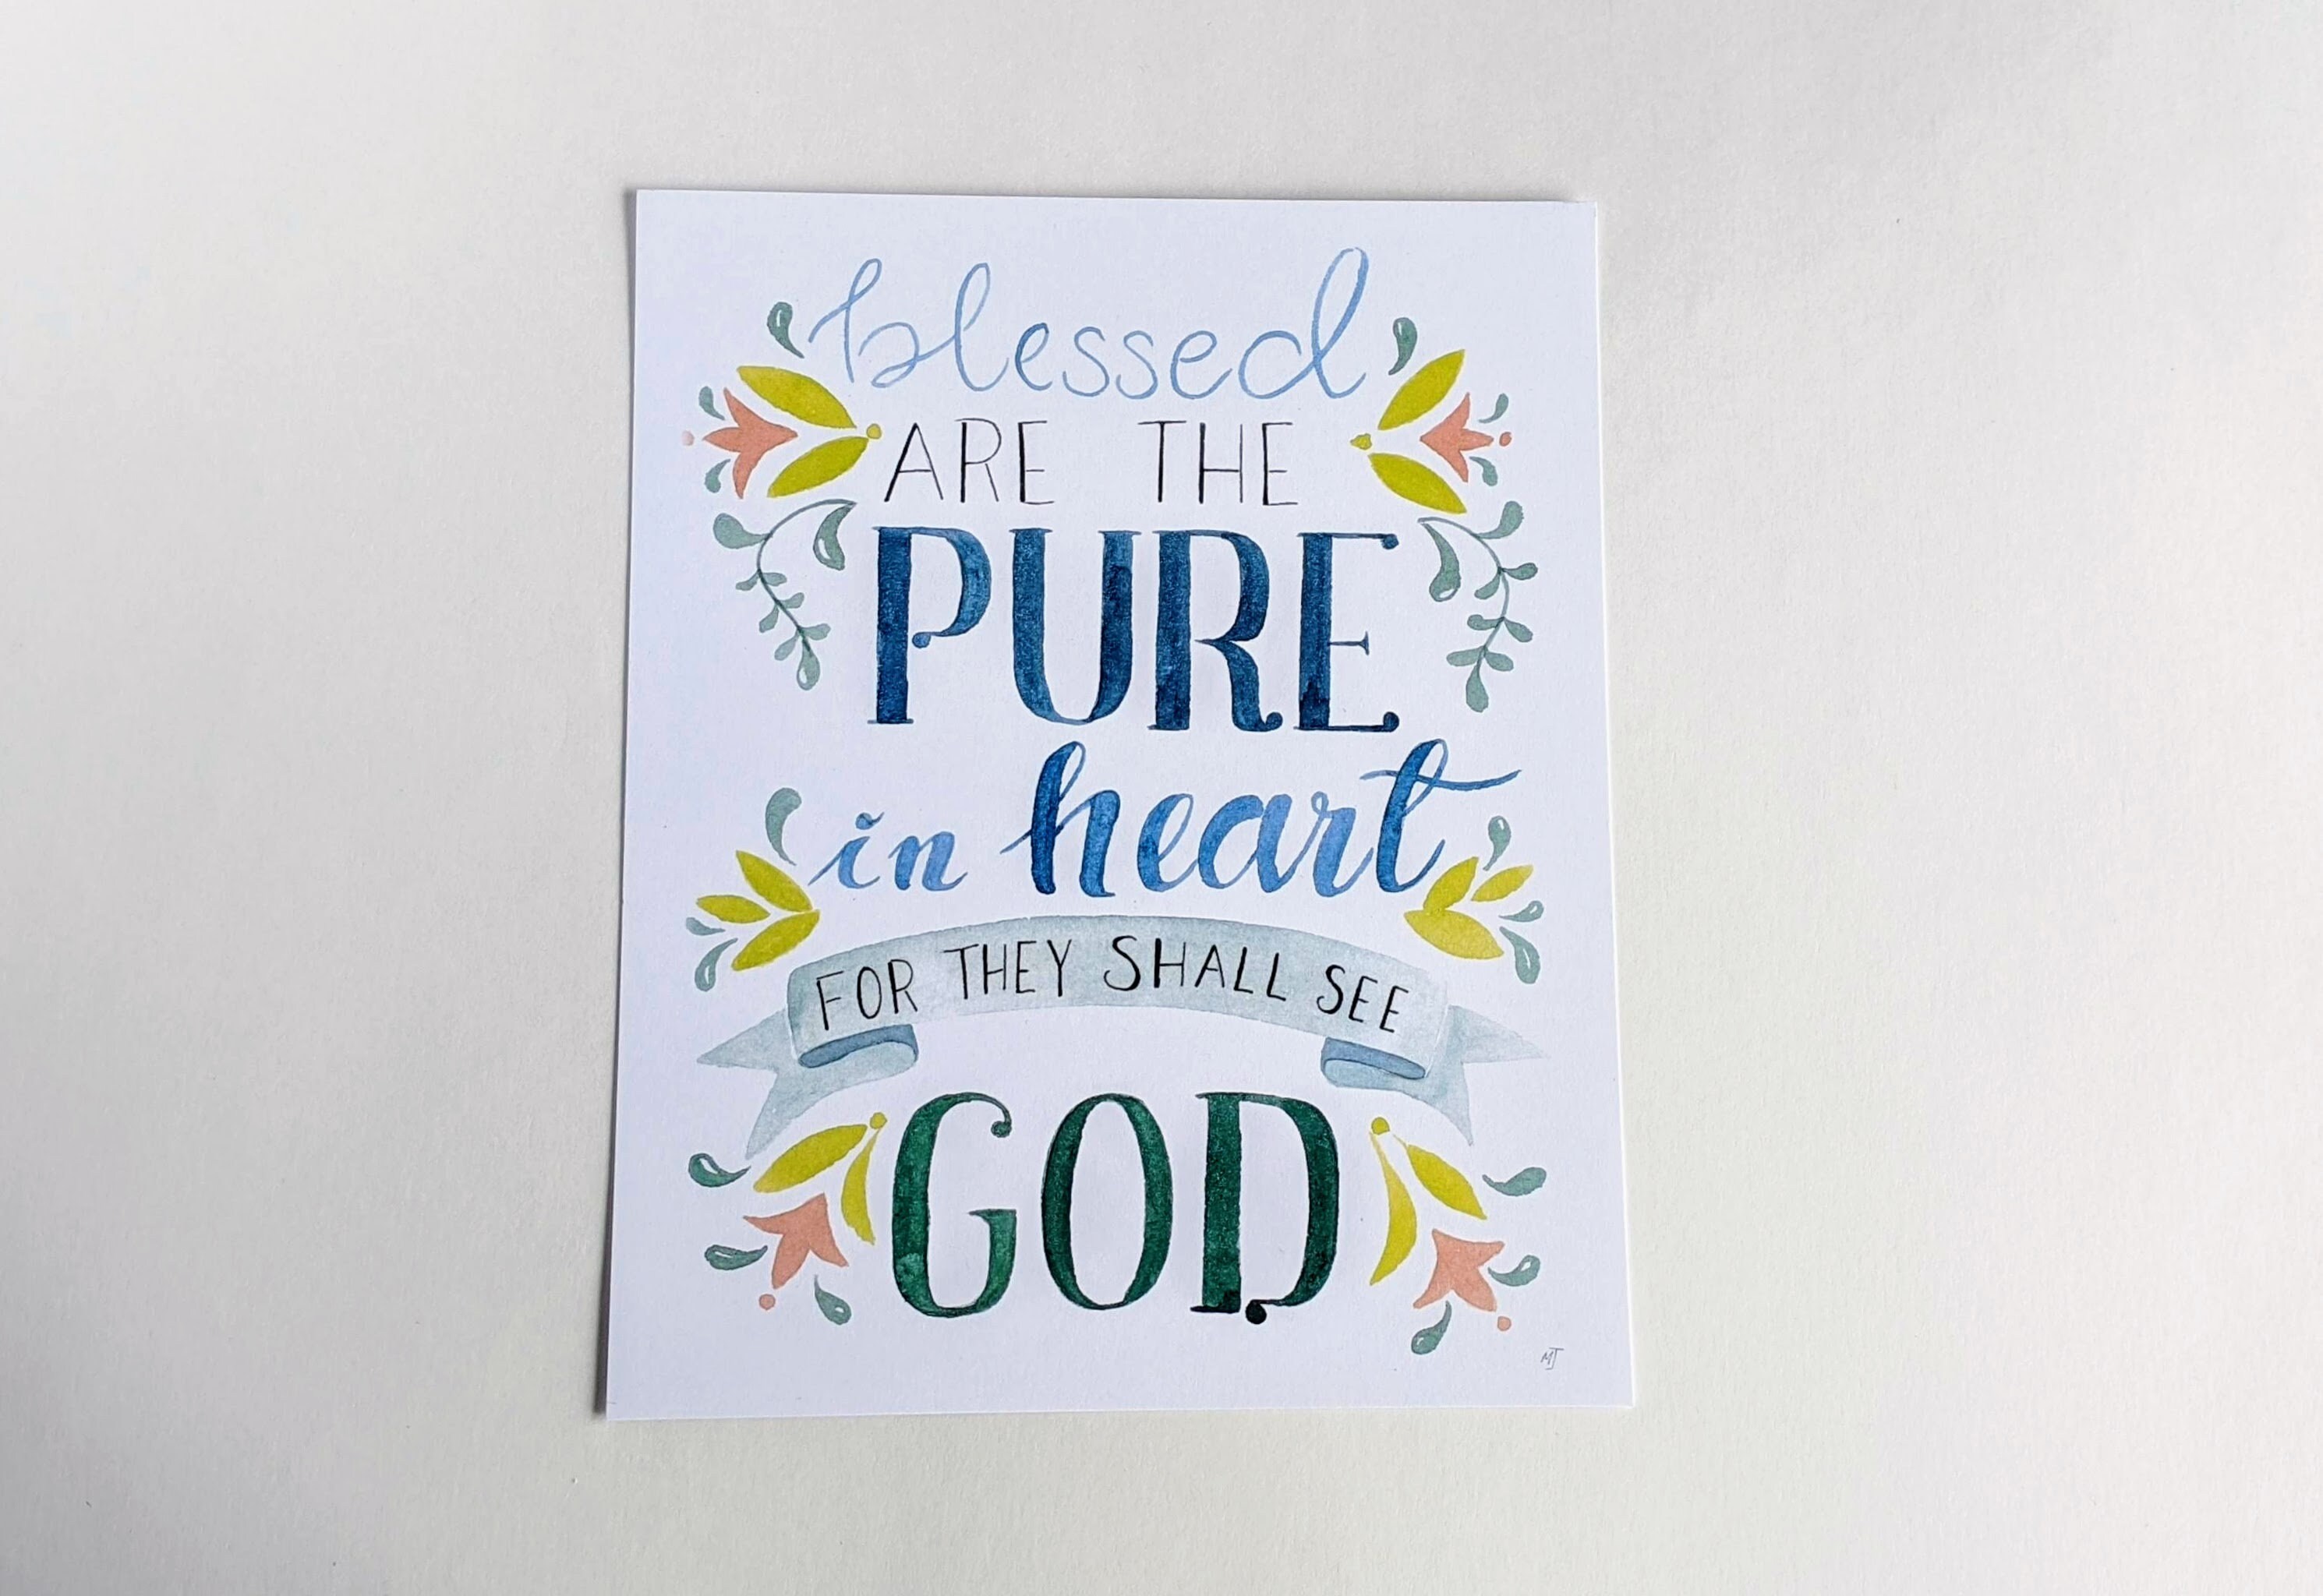 blessed
ARE THE
PURE
in heart
FOR THEY SHALL SEE
GOD
MJ